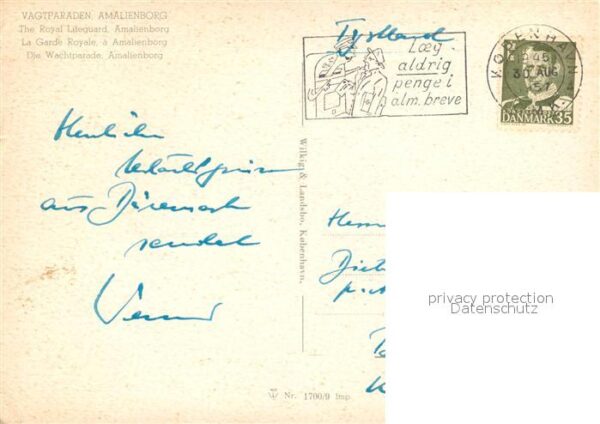 VAGTPARADEN, AMALIENBORG
The Royal Lifeguard, Amalienborg
La Garde Royale, à Amalienborg
Die Wachtparade, Amalienborg
Tyskland
Læg
aldrig
penge i
alm. breve
KØBENHAVN
30. AUG
DANMARK 35
Herzliche
aus Dänemark
sendet
Werner
Wilkigt & Landsbo, København.
Herrn
privacy protection
Datenschutz
Nr. 1700/9 Imp.